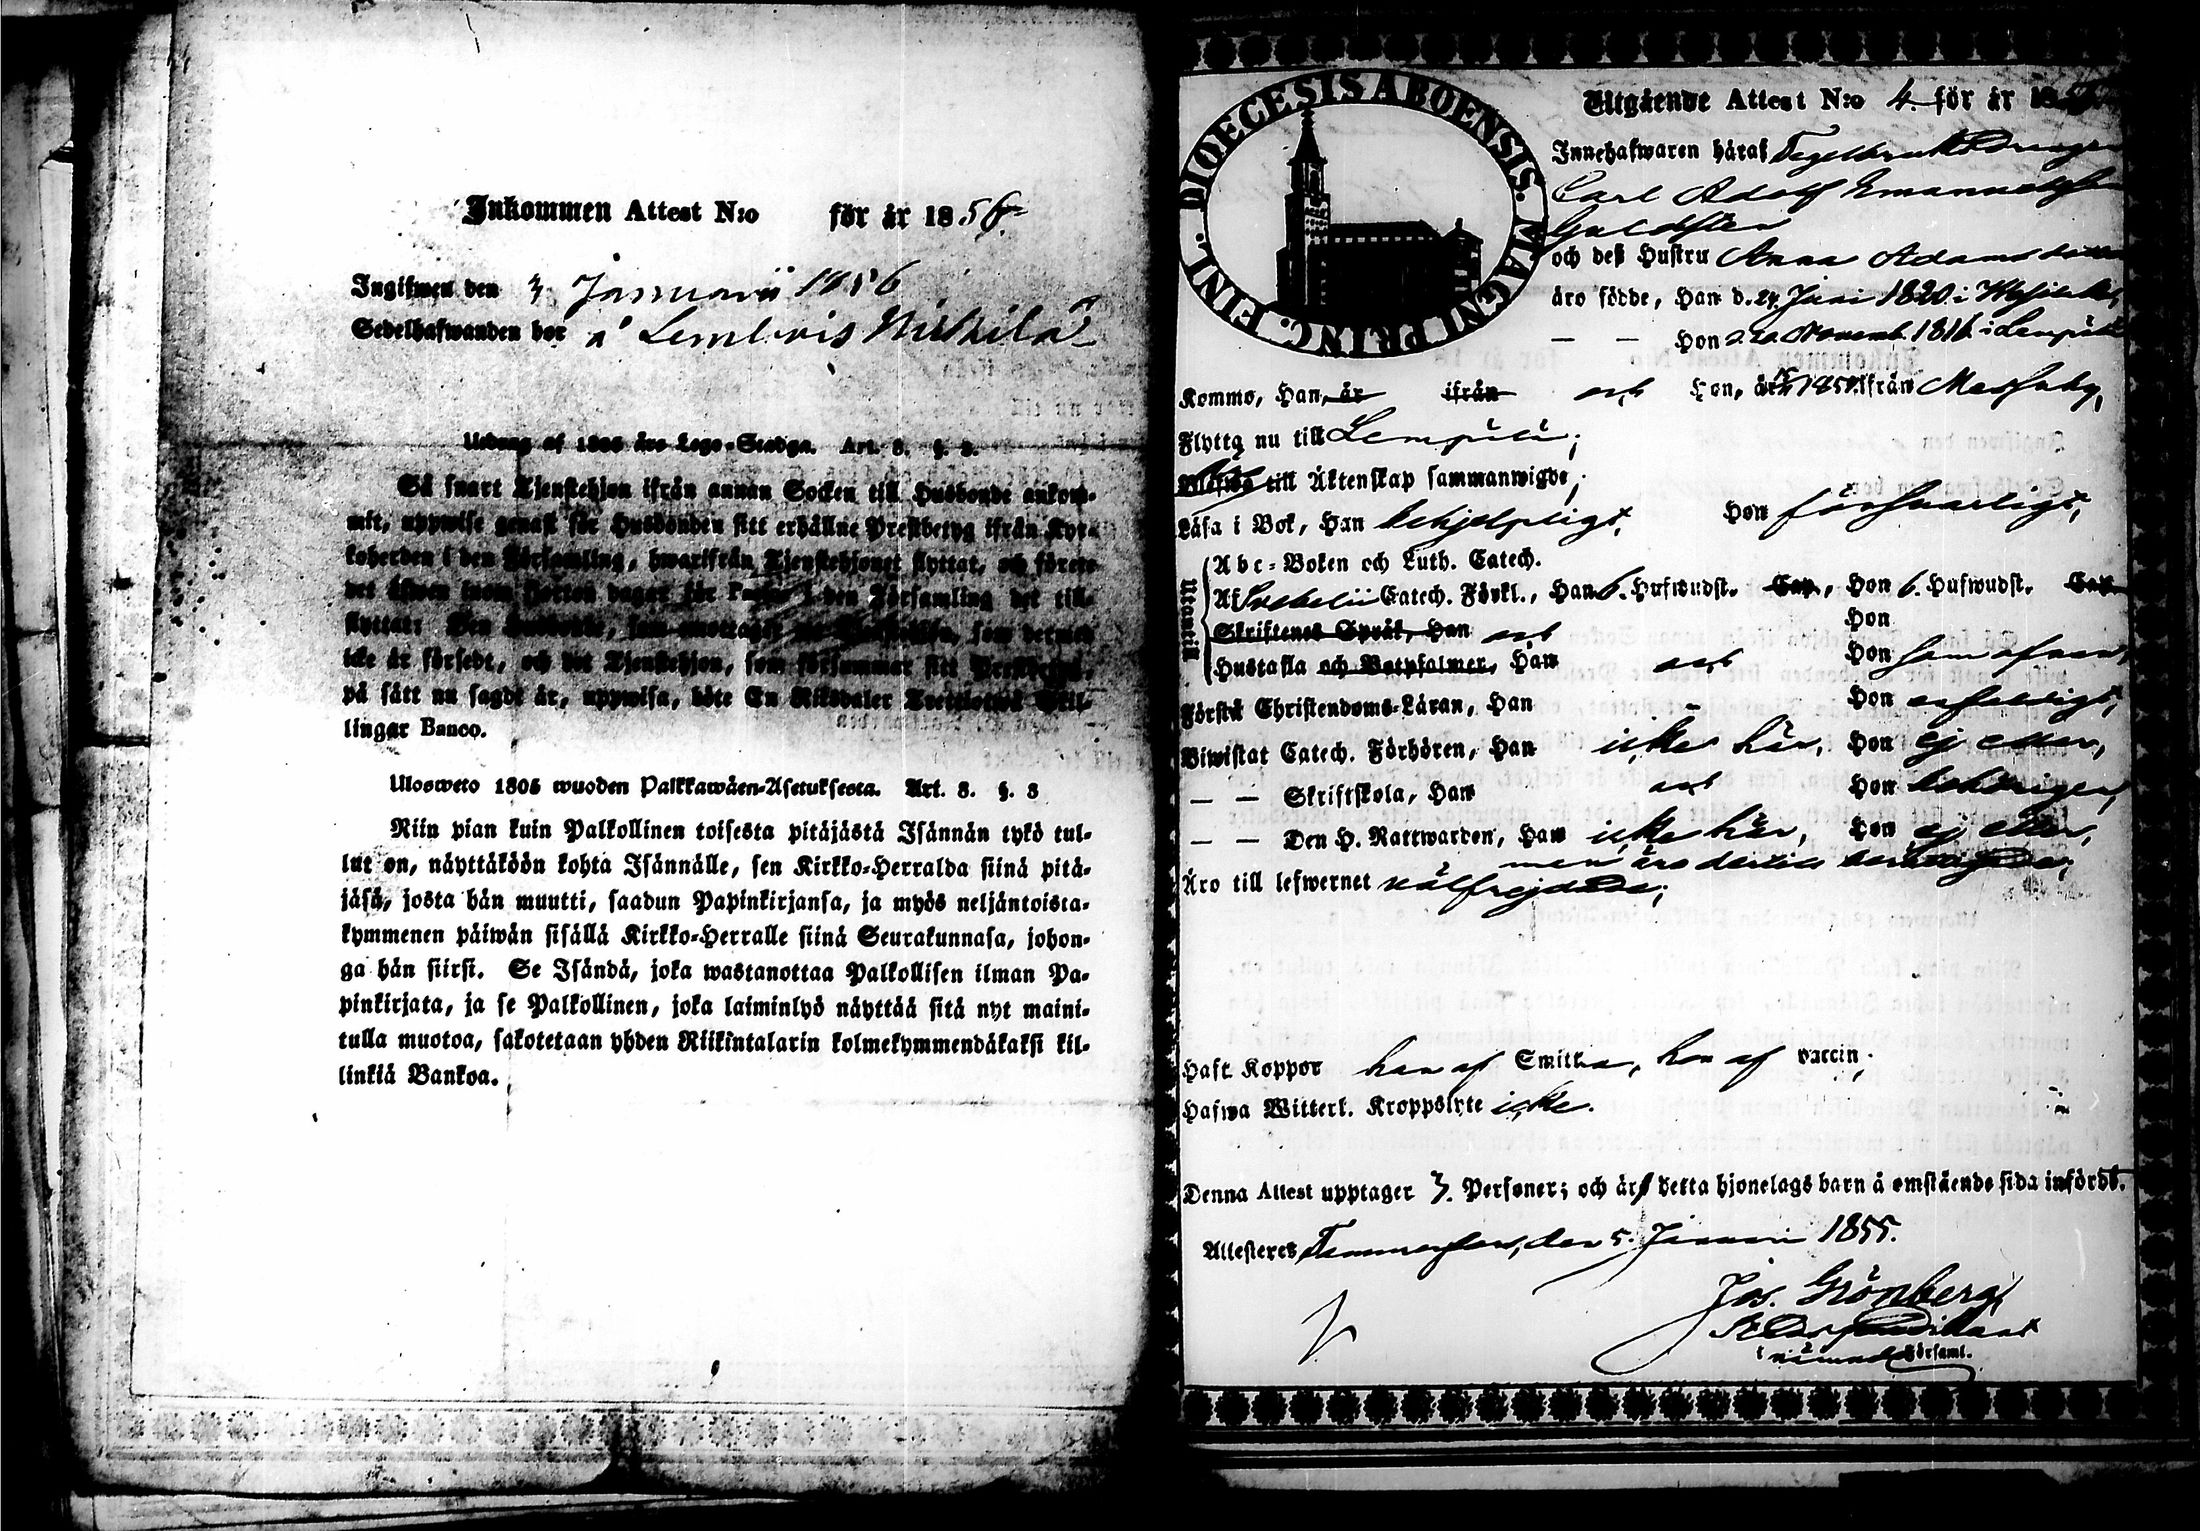 Inkommen Attest N:o för år 1856.
Ingifwen den 3 Januarii 1856
Sedelhafwanden bor å Lembois Mickilä
Utdrag af 1805 års Lego-Stadga. Art. 8. §. 3.
Så snart Tjenstehjon ifrån annan Socken till Husbonde ankom-
mit, uppwise genast för Husbonden sitt erhållne Prestbetyg ifrån Kyr-
koherden i den Församling, hwarifrån Tjenstehjonet flyttat, och förete
det äfwen inom fjorton dagar för i den Församling det till-
flyttat: Den Husbonde, som emottager som dermed
icke är försedt, och det Tjenstehjon, som försummar sitt
på sätt nu sagdt är, uppwisa, böte En Riksdaler Trettiotwå Skil-
lingar Banco.
Ulosweto 1805 wuoden Palkkawäen-Asetuksesta. Art. 8. §. 3
Niin pian kuin Palkollinen toisesta pitäjästä Isännän tykö tul-
lut on, näyttäköön kohta Isännälle, sen Kirkko-Herralda siinä pitä-
jäsä, josta hän muutti, saadun Papinkirjansa, ja myös neljäntoista-
kymmenen päiwän sisällä Kirkko-Herralle siinä Seurakunnasa, johon-
ga hän siirsi. Se Isändä, joka wastanottaa Palkollisen ilman Pa-
pinkirjata, ja se Palkollinen, joka laiminlyö näyttää sitä nyt maini-
tulla muotoa, sakotetaan yhden Riikintalarin kolmekymmendäkaksi kil-
linkiä Bankoa.
DIOECESIS ABOENSIS. MAGNI PRINC. FINL.
Utgående Attest N:o 4. för år 18
Innehafwaren häraf Tegelbruks Drängen
Carl Adolf Emanuelsson
Guldsten
och deß Hustru Anna Adamsdotter
äro födde, Han d. 24 Juni 1820 i
— — Hon d. 20 Novemb. 1816 i Lempälä
Kommo, Han, är ifrån och Hon, år 1850 ifrån Messuby,
Flytta nu till Lempälä;
till Äktenskap sammanwigde;
Läsa i Bok, Han behjelpligt, Hon försvarligt,
Utantill
Abc-Boken och Luth. Catech.
Af Svebelii Catech. Förkl., Han 6. Hufwudst. Cap., Hon 6. Hufwudst. Cap.
Skriftenes Språk, Han och Hon
Hustafla och Botpsalmer, Han och Hon samt ofvan,
Förstå Christendoms-Läran, Han Hon enfaldigt,
Biwistat Catech. Förhören, Han icke här, Hon ej eller,
— — Skriftskola, Han och Hon behörigen,
— — Den H. Nattwarden, Han icke här, Hon ej eller,
men äro dertill berättigade;
Äro till lefwernet välfrejdade;
Haft Koppor han af Smitta, hon af vaccin;
Hafwa Witterl. Kroppslyte icke.
Denna Attest upptager 3. Personer; och är detta hjonelags barn å omstående sida infördt.
Attesteres Tammerfors, den 5. Januari 1855.
Jos. Grönberg
i nämnde Församl.